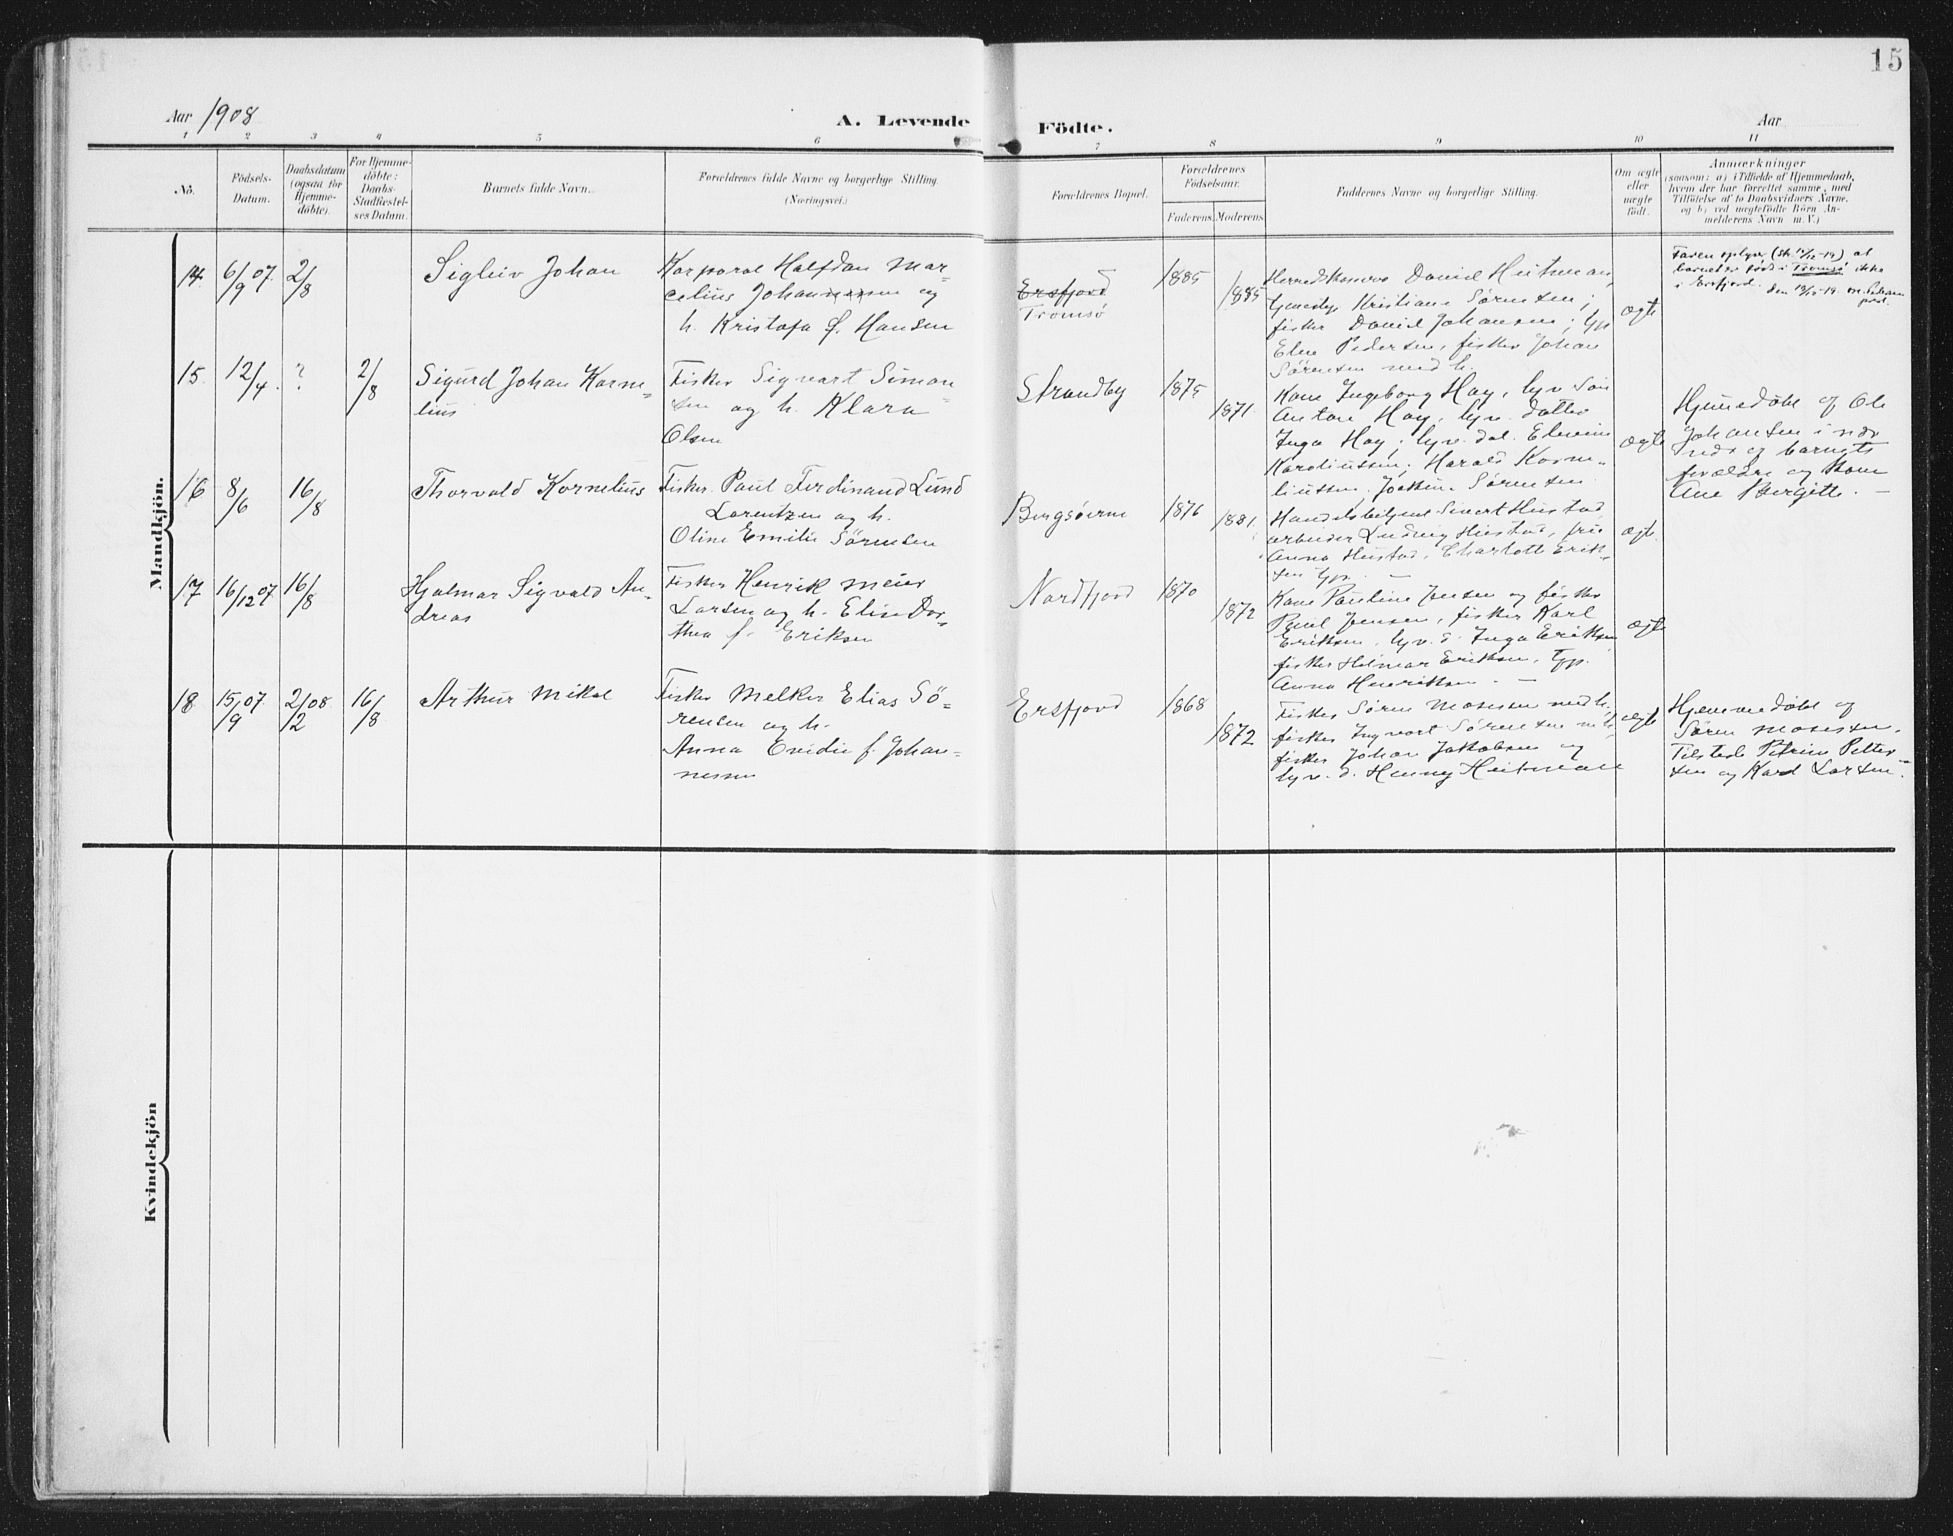 15
Aar 1908
A. Levende Födte.
Aar
1 2 3 4 5 6 7 8 9 10 11
No.
Födsels-
Datum.
Daabsdatum
(ogsaa for
Hjemme-
döbte).
For Hjemme-
döbte:
Daabs-
Stadfæstel-
ses Datum.
Barnets fulde Navn.
Forældrenes fulde Navne og borgerlige Stilling
(Næringsvei.)
Forældrenes Bopæl.
Forældrenes
Födselsaar.
Faderens
Moderens
Faddernes Navne og borgerlige Stilling.
Om ægte
eller
uægte
födt.
Anmærkninger
(saasom: a) i Tilfælde af Hjemmedaab,
hvem der har forrettet samme, med
Tilföielse af to Daabsvidners Navne.
og b) ved uægtefödte Börn An-
melderens Navn m. V.)
Mandkjön.
14. 6/9 07. 2/8
Sigleiv Johan
Korporal Halfdan Mar-
celius Johannessen og
h. Kristofa f. Hansen
Ersfjord
Tromsö
1885
1885
Daniel Heitman,
Kristiane Sörensen;
fisker Daniel Johansen; typ.
Elen Pedersen, fisker Johan
Sörensen med h.
ægte
Faren oplyser at
barnet er född i Tromsö ikke
i Ersfjord.
15. 12/4. ? 2/8
Sigurd Johan Korne-
lius
Fisker Sigvart Simon-
sen og h. Klara
Olsen
Strandby
1875
1871.
Kone Ingeborg Hay, lyv. Sön
Anton Hay, lyv. datter
Inga Hay, lyv. dat.
Harald Korne-
liussen, Sörensen
ægte
Hjemedöbt af Ole
Johansen i nær
barnets
forældre og Kone
Ane Bergitte. –
16 8/6 16/8
Thorvald Kornelius
Fisker Paul Ferdinand Lund
Lorentzen og h.
Oline Emilie Sörensen
Bergsöerne
1876
1881.
Sivert Hustad,
arbeider Ludvig Hustad, fru
Anna Hustad, Charlotte Erik-
sen typ. –
ægte
17 16/12 07 16/8
Hjalmar Sigvald An-
dreas
Fisker Henrik Meier
Larsen og h. Elise Dor-
thea f. Eriksen
Nordfjord
1870
1872
Kone Pauline Jensen og fisker
Paul Jensen, fisker Karl
Eriksen, lyv. d. Inga Eriksen
fisker Hilmar Eriksen, typ.
Anna Henriksen. –
ægte
18 15/9 07 2/2 08 16/8
Arthur Mikal
Fisker Melker Elias Sö-
rensen og h.
Anna Evidie f. Johan-
nesen
Ersfjord
1868
1872
Fisker Sören Mosesen med h.
fisker Ingvart Sörensen m. h.
fisker Johan Jakobsen og
lyv. d. Henny Heitman
ægte
Hjemmedöbt af
Sören Mosesen.
Tilsted Petrine Petter-
sen og Karl Larsen.
Kvindekjön